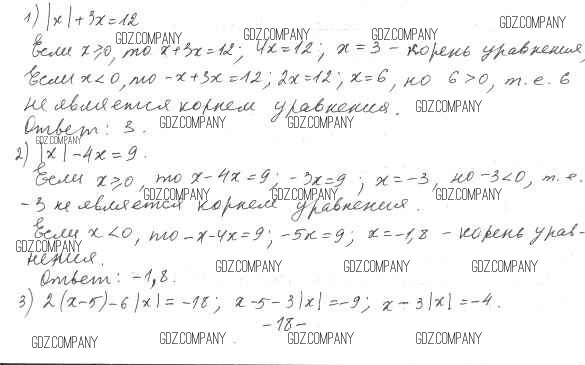 1) |x|+3x=12
Если x⩾0, то x+3x=12; 4x=12; x=3 – корень уравнения,
Если x<0, то -x+3x=12; 2x=12; x=6, но 6>0, т.е. 6
не является корнем уравнения.
Ответ: 3.
2) |x|-4x=9.
Если x⩾0, то x-4x=9; -3x=9; x=-3, но -3<0, т.е.
-3 не является корнем уравнения.
Если x<0, то -x-4x=9; -5x=9; x=-1,8 – корень урав-
нения.
Ответ: -1,8.
3) 2(x-5)-6|x|=-18; x-5-3|x|=-9; x-3|x|=-4.
-18-
GDZ.COMPANY GDZ.COMPANY GDZ.COMPANY GDZ.COMPANY
GDZ.COMPANY
GDZ.COMPANY GDZ.COMPANY
GDZ.COMPANY
GDZ.COMPANY GDZ.COMPANY GDZ.COMPANY
GDZ.COMPANY
GDZ.COMPANY GDZ.COMPANY GDZ.COMPANY
GDZ.COMPANY GDZ.COMPANY GDZ.COMPANY GDZ.COMPANY